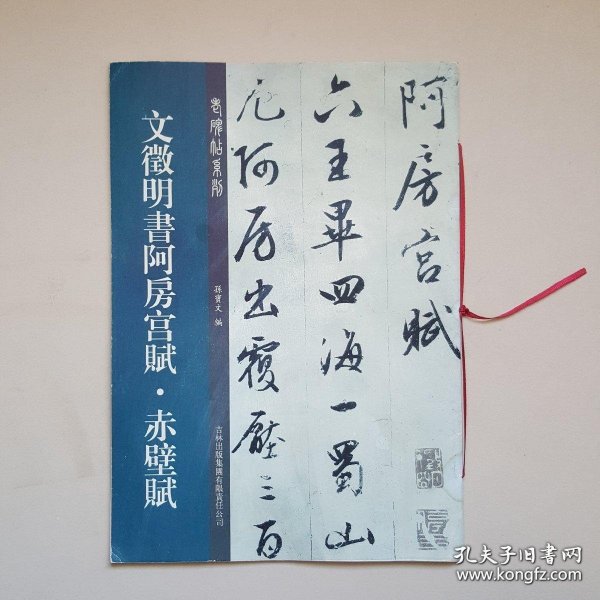 文徵明書阿房宮賦·赤壁賦
老碑帖系列
孫寶文 編
吉林出版集團有限責任公司
阿房宮賦
六王畢四海一蜀山
兀阿房出覆壓三百
孔夫子旧书网
www.kongfz.com